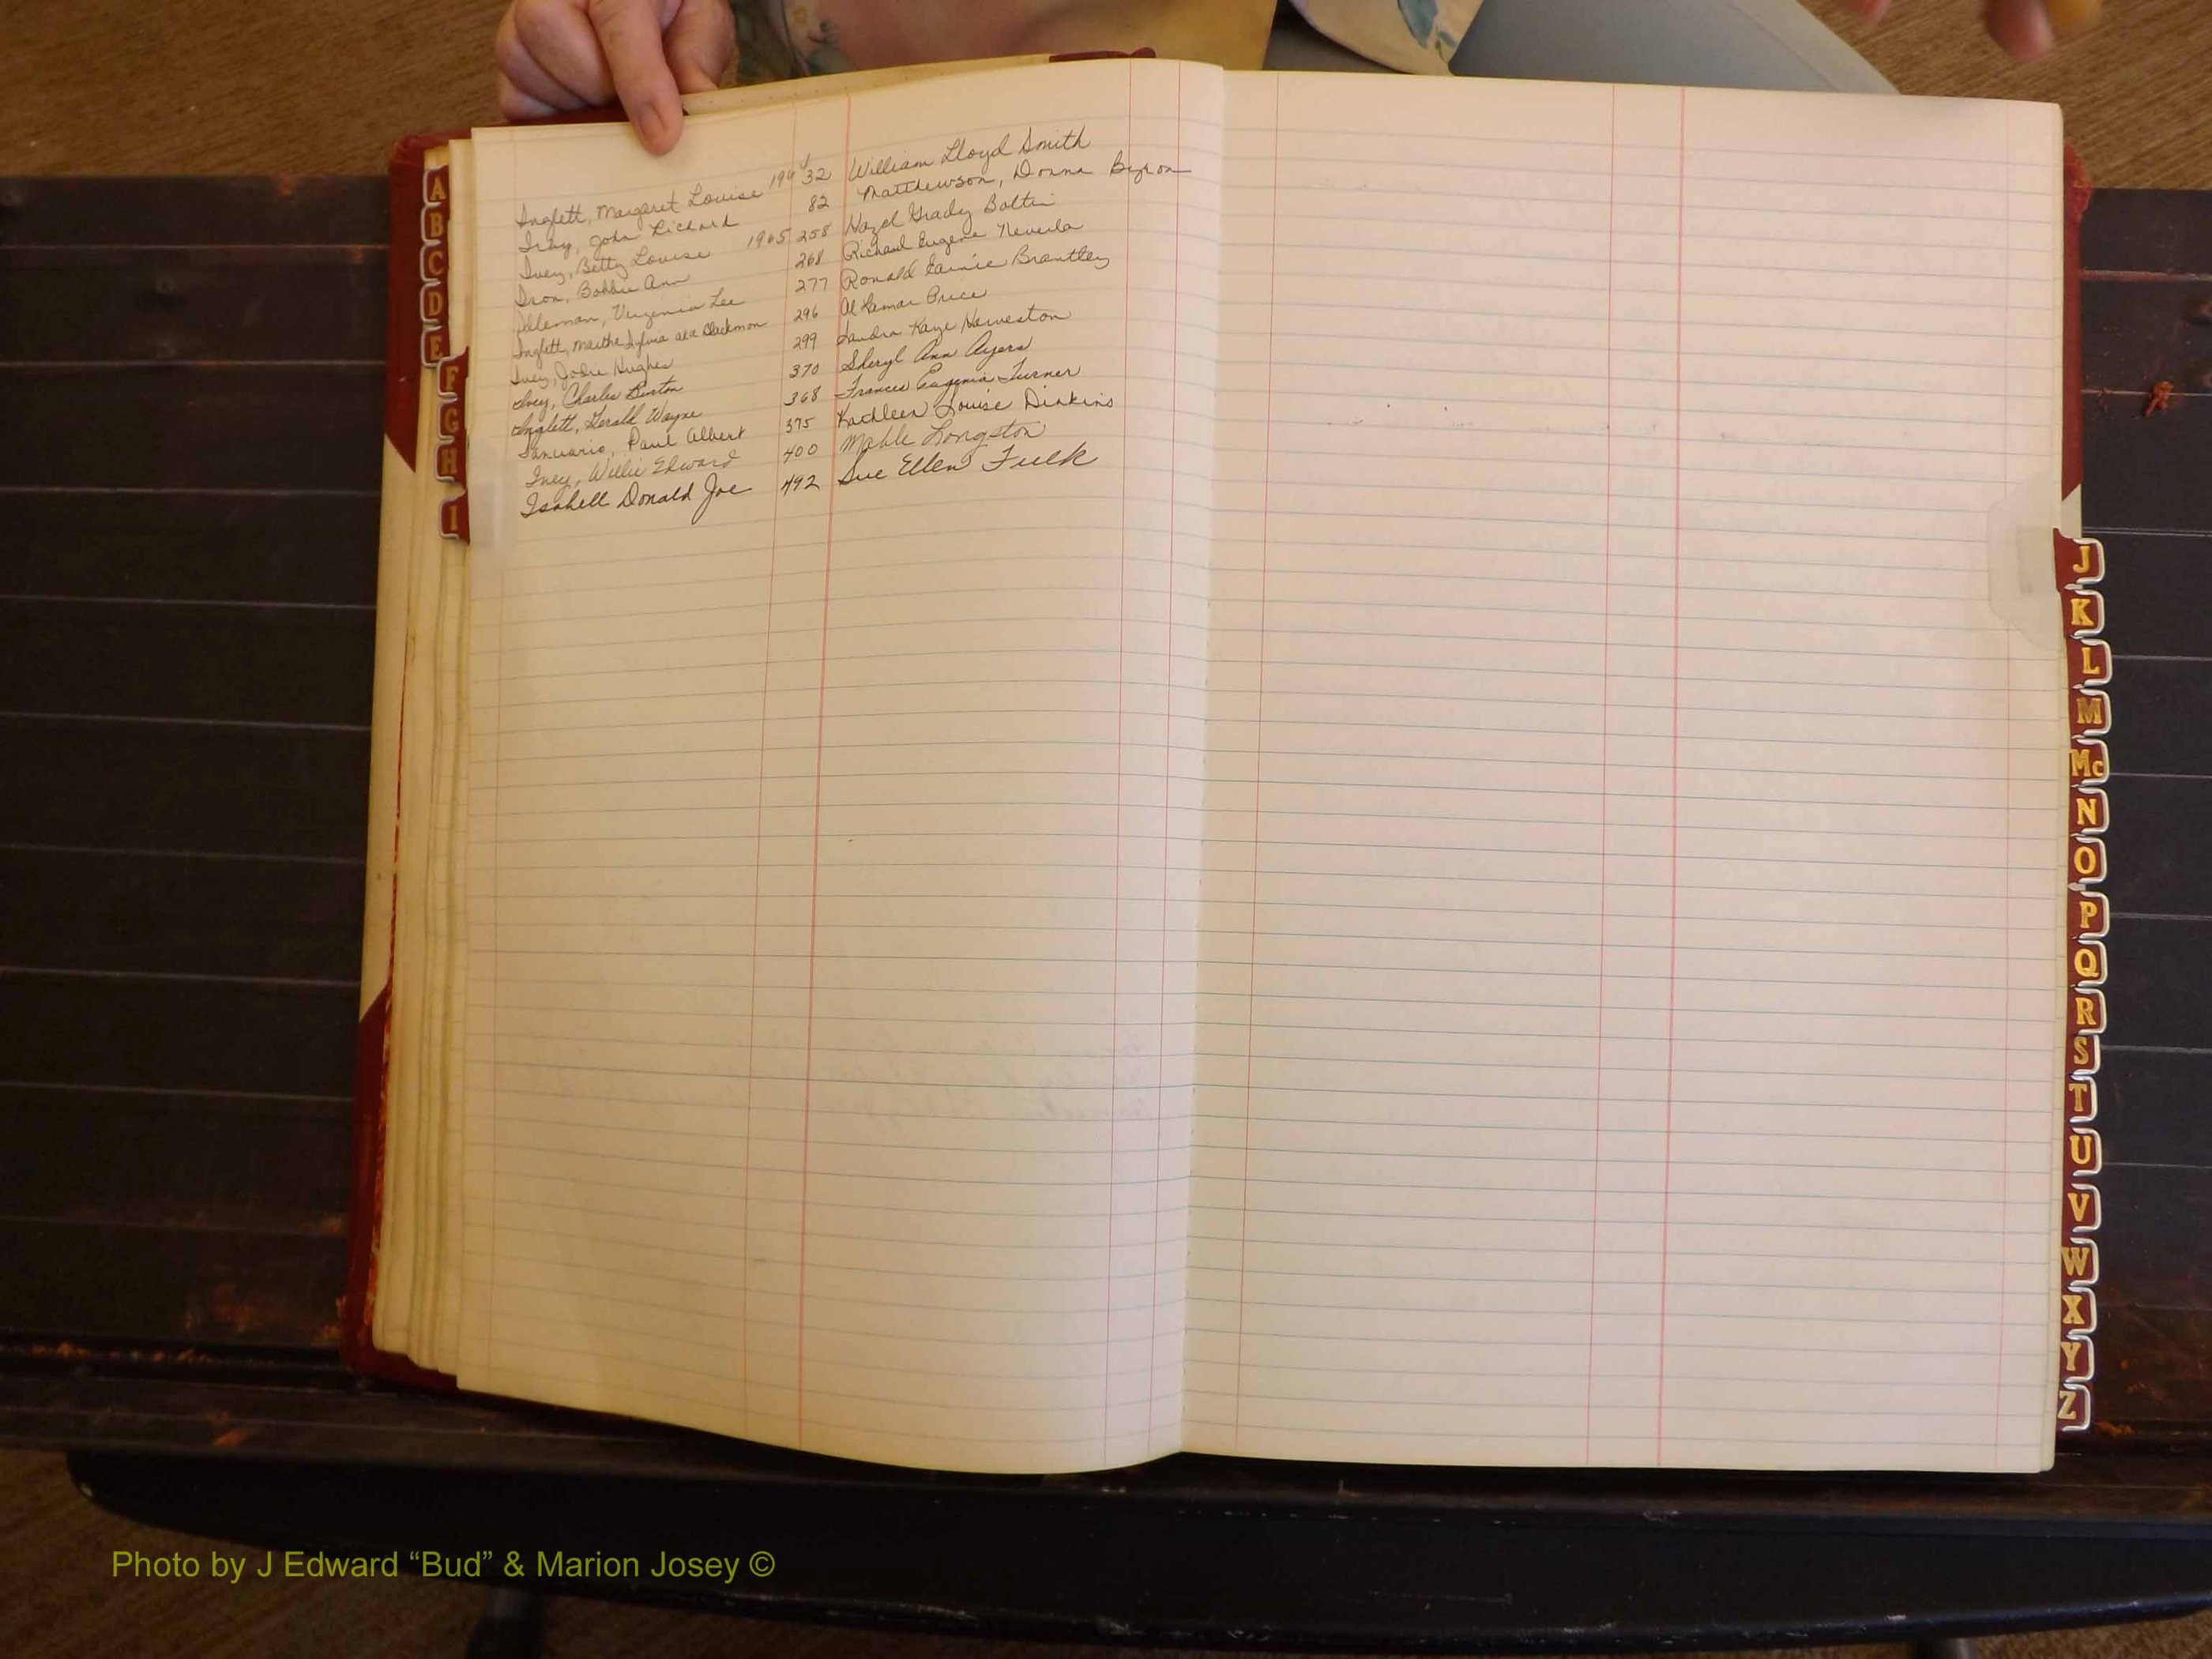 Inglett, Margaret Louise 1964 32 William Lloyd Smith
Irby, John Richard 82 Matthewson, Donna Byron
Ivey, Betty Louise 1965 258 Hazel Grady Boltin
Iron, Bobbie Ann 268 Richard Eugene Neverla
Idleman, Virginia Lee 277 Ronald Earnie Brantley
Inglett, Martha Sylvia aka Blackmon 296 Al Lamar Price
Ivey, Jodie Hughes 299 Sandra Kaye
Ivey, Charles Burton 370 Sheryl Ann Ayers
Inglett, Gerald Wayne 368 Frances Eugenia Turner
Ianuario, Paul Albert 375 Kathleen Louise Dinkins
Ivey, Willie Edward 400 Mable Longston
Isabell Donald Joe 492 Sue Ellen Fulk
A
B
C
D
E
F
G
H
I
J
K
L
M
Mc
N
O
P
Q
R
S
T
U
V
W
X
Y
Z
Photo by J Edward “Bud” & Marion Josey ©